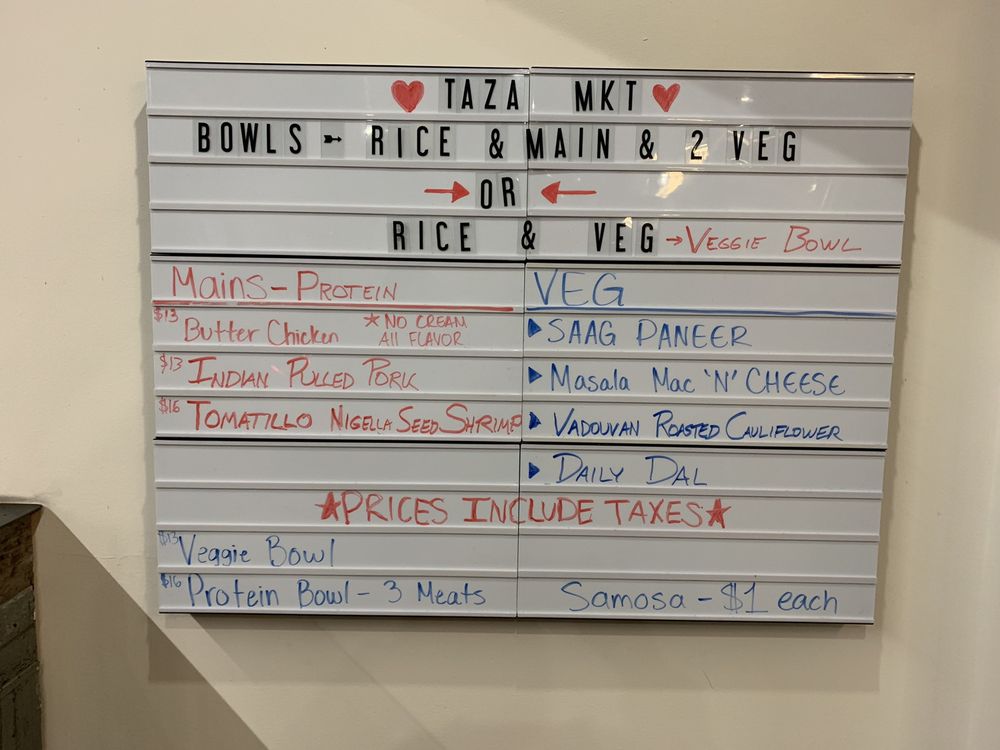 TAZA MKT
BOWLS ➳ RICE & MAIN & 2 VEG
→ OR ←
RICE & VEG → VEGGIE BOWL
Mains - PROTEIN
$13 Butter Chicken ★ NO CREAM
All FLAVOR
$13 INDIAN PULLED PORK
$16 TOMATILLO NIGELLA SEED SHRIMP
VEG
▶ SAAG PANEER
▶ Masala Mac 'N' CHEESE
▶ VADOUVAN ROASTED CAULIFLOWER
▶ DAILY DAL
★PRICES INCLUDE TAXES★
$13 Veggie Bowl
$16 Protein Bowl - 3 Meats
Samosa - $1 each